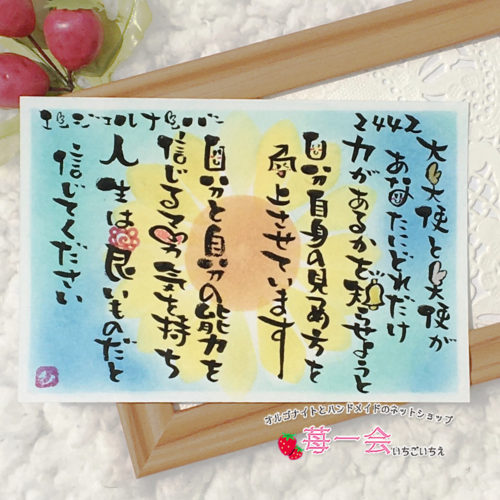 エンジェルナンバー
2442
大天使と天使が
あなたにどれだけ
力があるかを知らせようと
自分自身の見つめ方を
向上させています
自分と自分の能力を
信じる勇気を持ち
人生は良いものだと
信じてください
オルゴナイトとハンドメイドのネットショップ
苺一会いちごいちえ